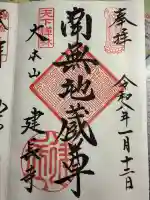 奉拝
令和八年一月十二日
南無地蔵尊
天下禅林
大本山
建仁寺